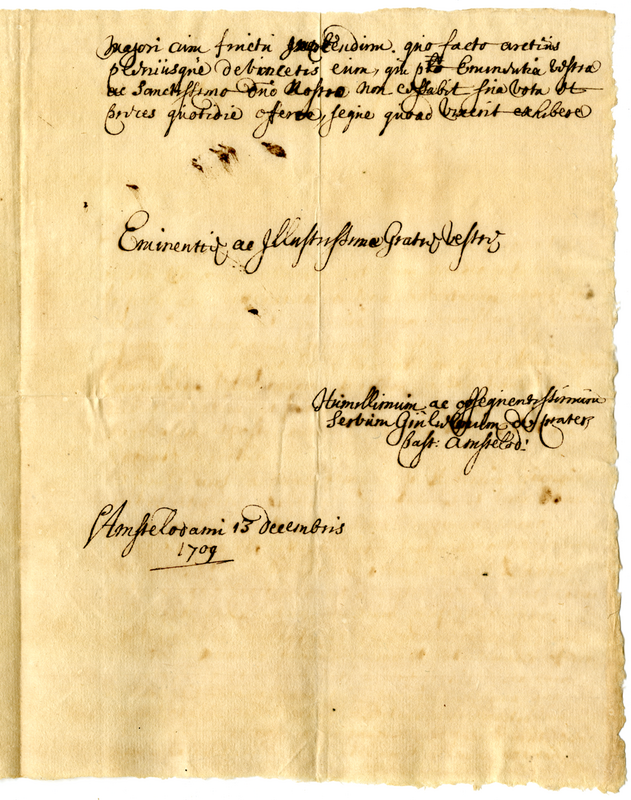 majori cum fructu implendum. quo facto arctius
pleniusque devincetis eum, qui pro Eminentia vestra
ac Sanctissimo Dno Nostro non cessabit sua vota et
preces quotidie offerre, seque quoad vixerit exhibere
Eminentiæ ac Illustrissimæ Gratiæ Vestræ
Humillimum ac obsequentissimum
Servum Guiliel de
Past: Amstelod:
Amstelodami 13 decembris
1709